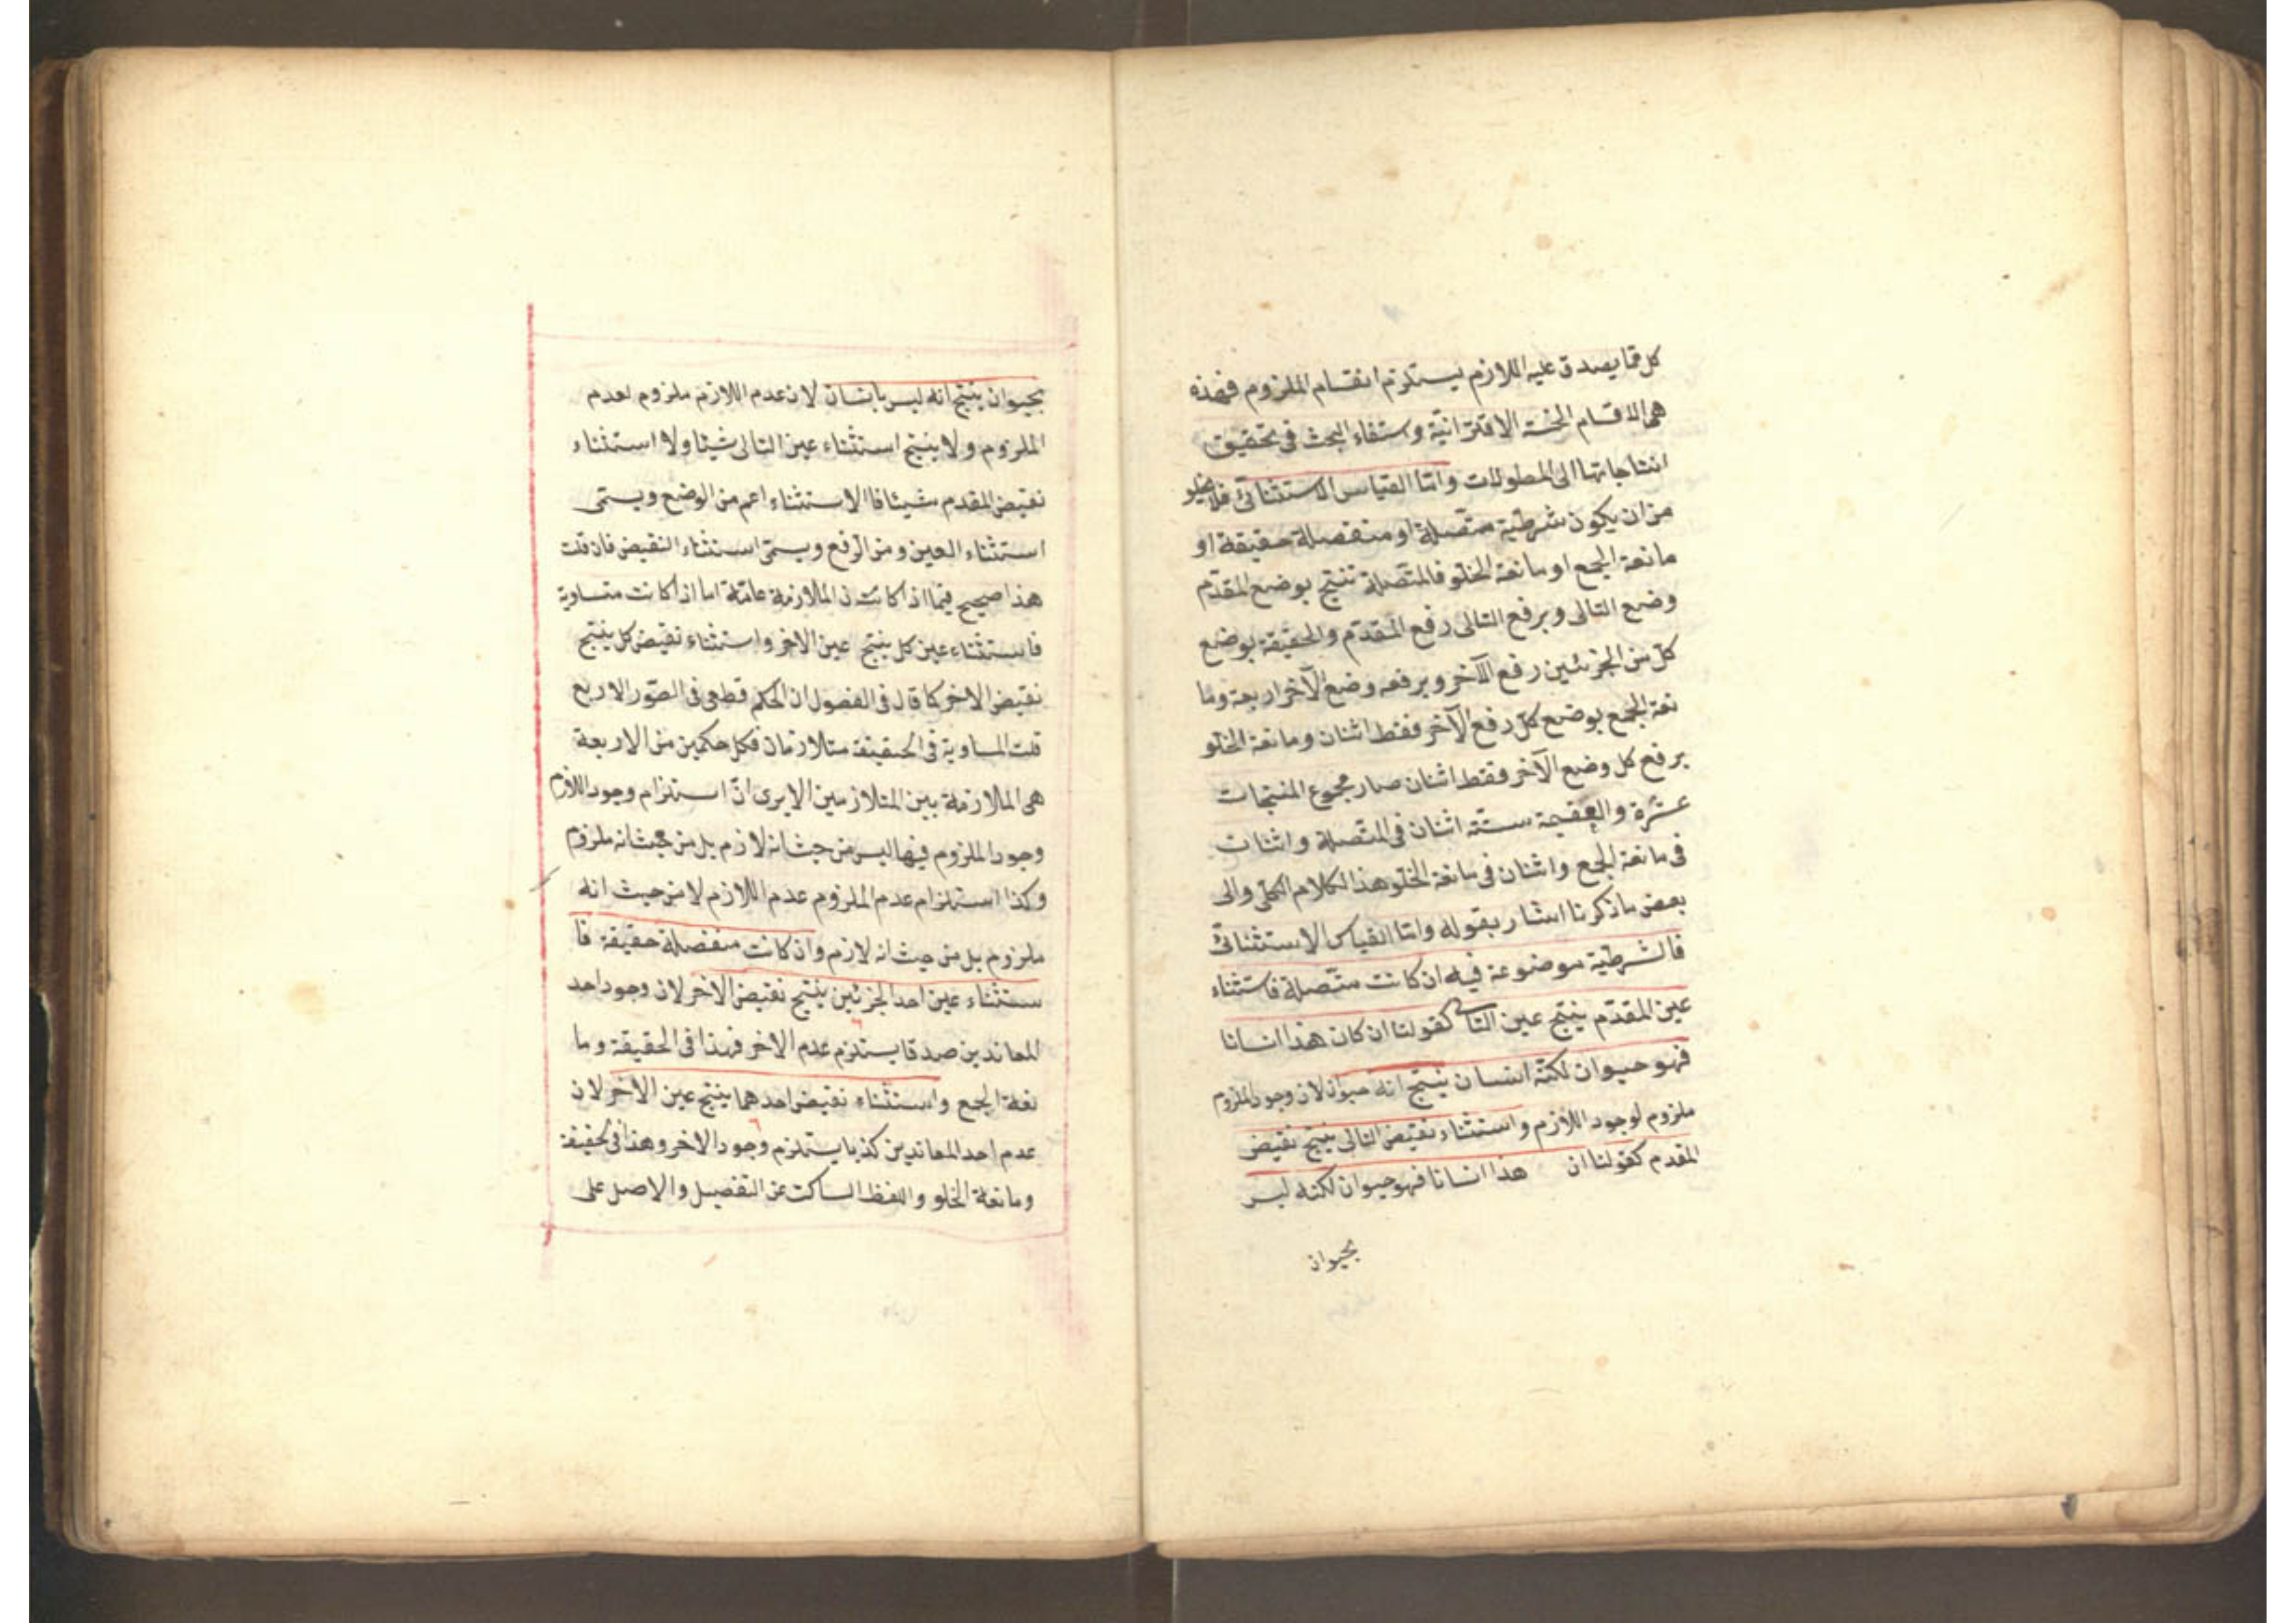 كل مما يصدق عليه اللازم يستلزم انقسام الملزوم فهذه
هى الاقسام الخمسة الاقترانية وستفاء البحث فى تحقيق
انتاجاتها الى المطولات وامّا القياس الاستثنائى فلا يخلو
من ان يكون شرطية متصلة او منفصلة حقيقة او
مانعة الجمع او مانعة الخلو فالمتصلة تنتج بوضع المقدّم
وضع التالى وبرفع التالى رفع المقدّم والحقيقة بوضع
كل من الجزئين رفع الآخر وبرفعه وضع الآخر اربعة وما
نعة الجمع بوضع كل رفع الآخر فقط اثنان ومانعة الخلو
برفع كل وضع الآخر فقط اثنان صار مجموع المنتجات
عشرة والعقيمة ستة اثنان فى المتصلة واثنات
فى مانعة الجمع واثنان فى مانعة الخلو هذا الكلام الكلى والى
بعض ما ذكرنا اشار بقوله وامّا القياس الاستثنائى
فالشرطية موضوعة فيه ان كانت متصلة فاستثناء
عين المقدّم ينتج عين التالى كقولنا ان كان هذا انسانا
فهو حيوان لكنّه انسان ينتج انه حيوان لان وجود الملزوم
ملزوم لوجود اللازم واستثناء نقيض التالى ينتج نقيض
المقدم كقولنا ان هذا انسانا فهو حيوان لكنه ليس
بحيوان
بحيوان ينتج انه ليس بانسان لان عدم اللازم ملزوم لعدم
الملزوم ولا ينتج استثناء عين التالى شيئا ولا استثناء
نقيض المقدم شيئا فالاستثناء اعم من الوضع ويسمى
استثناء العين ومن الرفع ويسمّى استثناء النقيض فان قلت
هذا صحيح فيما اذا كانت الملازمة عامّة اما اذا كانت متساوية
فاستثناء عين كل ينتج عين الاخر واستثناء نقيض كل ينتج
نقيض الاخر كما قال فى الفصول ان الحكم قطعى فى الصّور الاربع
قلت المساوية فى الحقيقة متلازمان فكل حكمين من الاربعة
هى الملازمة بين المتلازمين الا يرى انّ استلزام وجود اللازم
وجود الملزوم فيها ليس من حيث انه لازم بل من حيث انه ملزوم
وكذا استلزام عدم الملزوم عدم اللازم لا من حيث انه
ملزوم بل من حيث انه لازم وان كانت منفصلة حقيقة فا
ستثناء عين احد الجزئين ينتج نقيض الاخر لان وجود احد
المعاندين صدقا يستلزم عدم الاخر فهذا فى الحقيقة وما
نعة الجمع واستثناء نقيض احدهما ينتج عين الاخر لان
عدم احد المعاندين كذبا يستلزم وجود الاخر وهذا فى حقيقة
ومانعة الخلو واللفظ الساكت عن التفصيل والاصل على